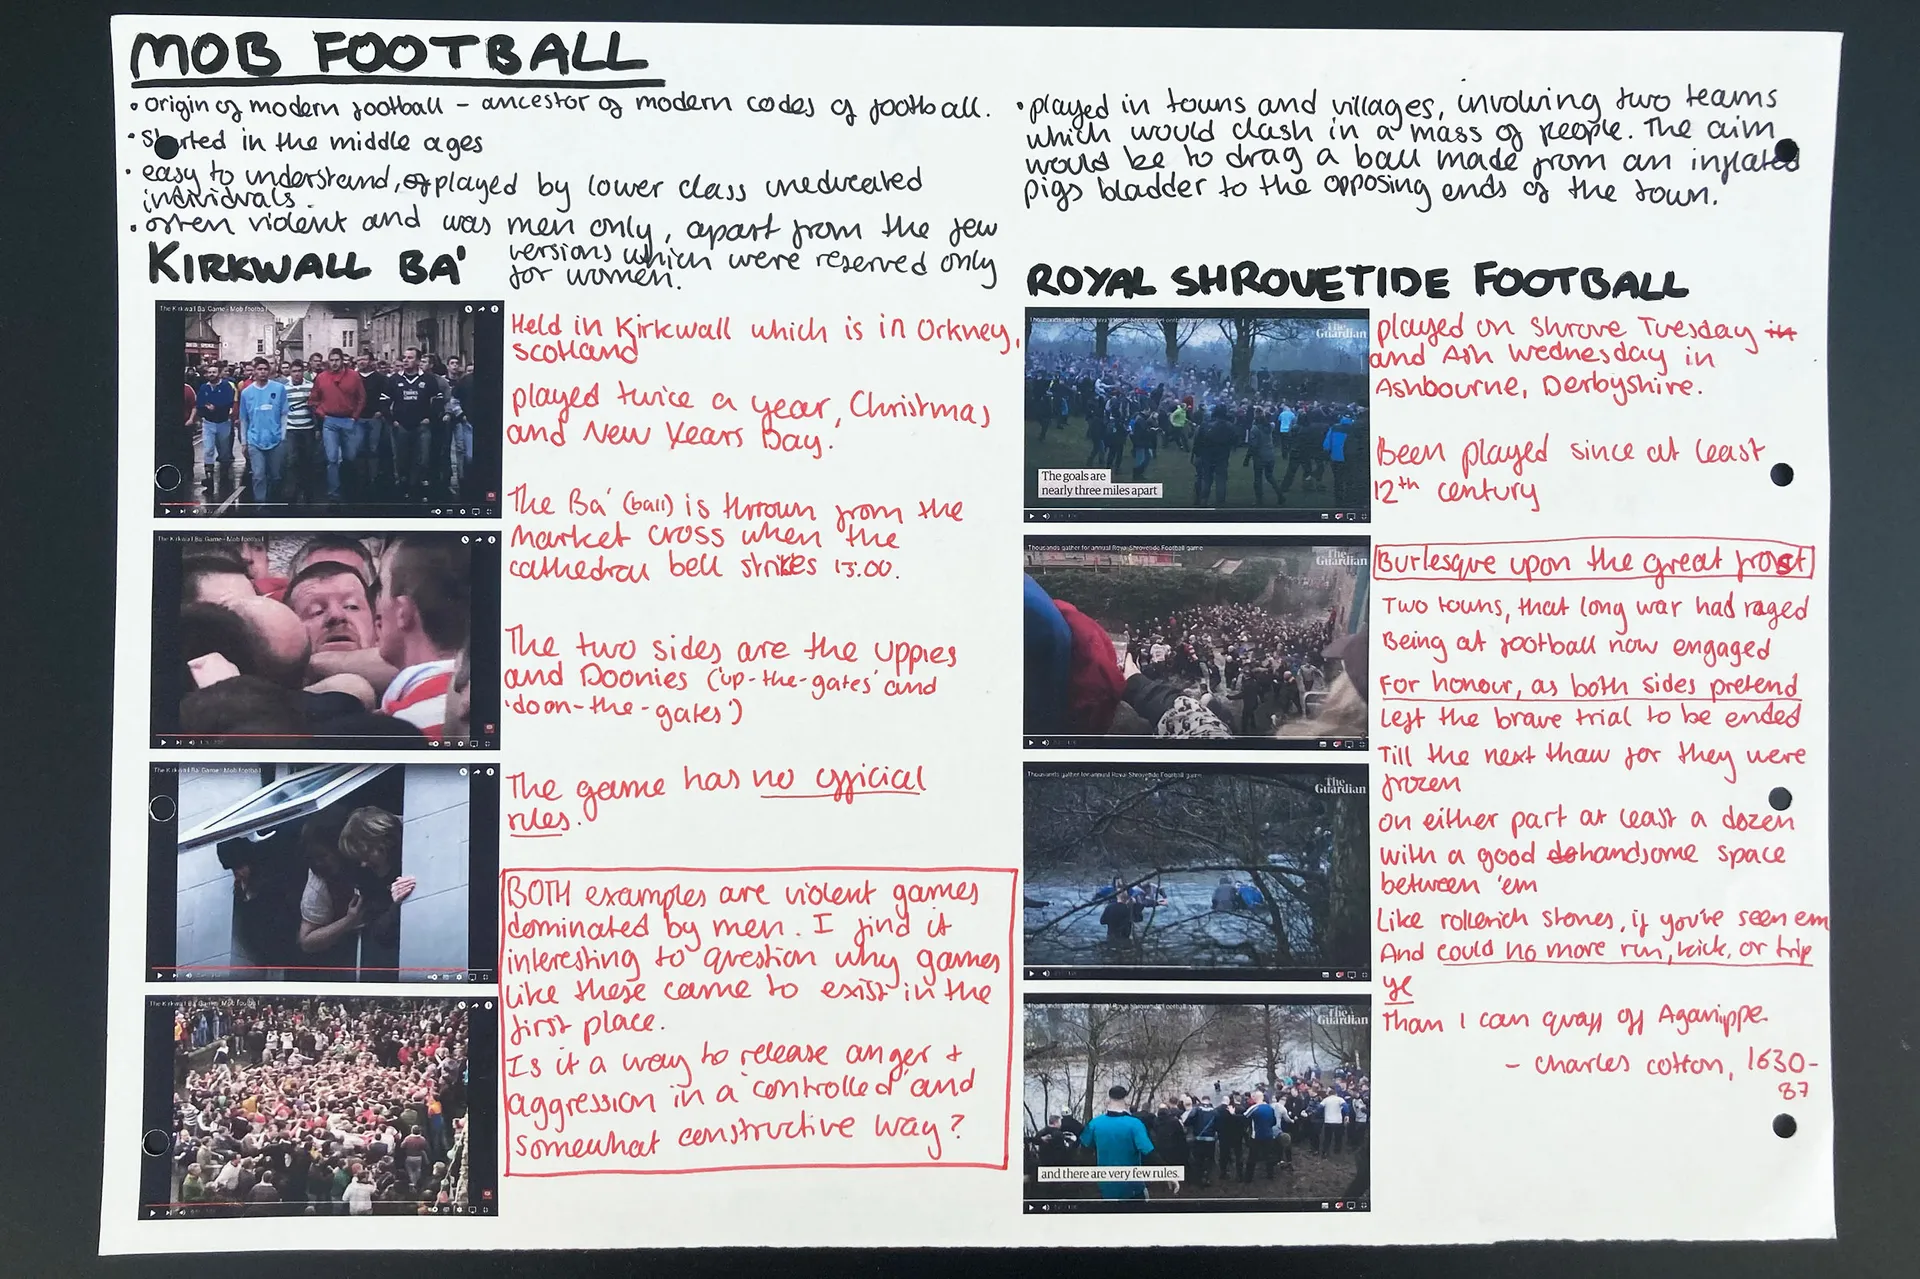 MOB FOOTBALL
• origin of modern football – ancestor of modern codes of football.
• started in the middle ages
• easy to understand, played by lower class uneducated
individuals.
• often violent and was men only, apart from the few
versions which were reserved only
for women.
• played in towns and villages, involving two teams
which would clash in a mass of people. The aim
would be to drag a ball made from an inflated
pigs bladder to the opposing ends of the town.
KIRKWALL BA'
The Kirkwall Ba' Game - Mob football
The Kirkwall Ba' Game - Mob football
The Kirkwall Ba' Game - Mob football
The Kirkwall Ba' Game - Mob football
Held in Kirkwall which is in Orkney,
Scotland
played twice a year, Christmas
and New Years Day.
The Ba' (ball) is thrown from the
market cross when the
cathedral bell strikes 13.00.
The two sides are the Uppies
and Doonies ('up-the-gates' and
'doon-the-gates')
The game has no official
rules.
BOTH examples are violent games
dominated by men. I find it
interesting to question why games
like these came to exist in the
first place.
Is it a way to release anger +
aggression in a 'controlled' and
somewhat constructive way?
ROYAL SHROVETIDE FOOTBALL
The Guardian
The goals are
nearly three miles apart
Thousands gather for annual Royal Shrovetide Football game
The Guardian
Thousands gather for annual Royal Shrovetide Football game
The Guardian
Thousands gather for annual Royal Shrovetide Football game
The Guardian
and there are very few rules.
played on Shrove Tuesday in
and Ash Wednesday in
Ashbourne, Derbyshire.
Been played since at least
12th century
Burlesque upon the great frost
Two towns, that long war had raged
Being at football now engaged
For honour, as both sides pretend
Left the brave trial to be ended
Till the next thaw for they were
frozen
on either part at least a dozen
with a good handsome space
between 'em
Like rollerich stones, if you've seen em
And could no more run, kick, or trip
ye
Than I can quaff off Aganippe.
– Charles Cotton, 1630-
87